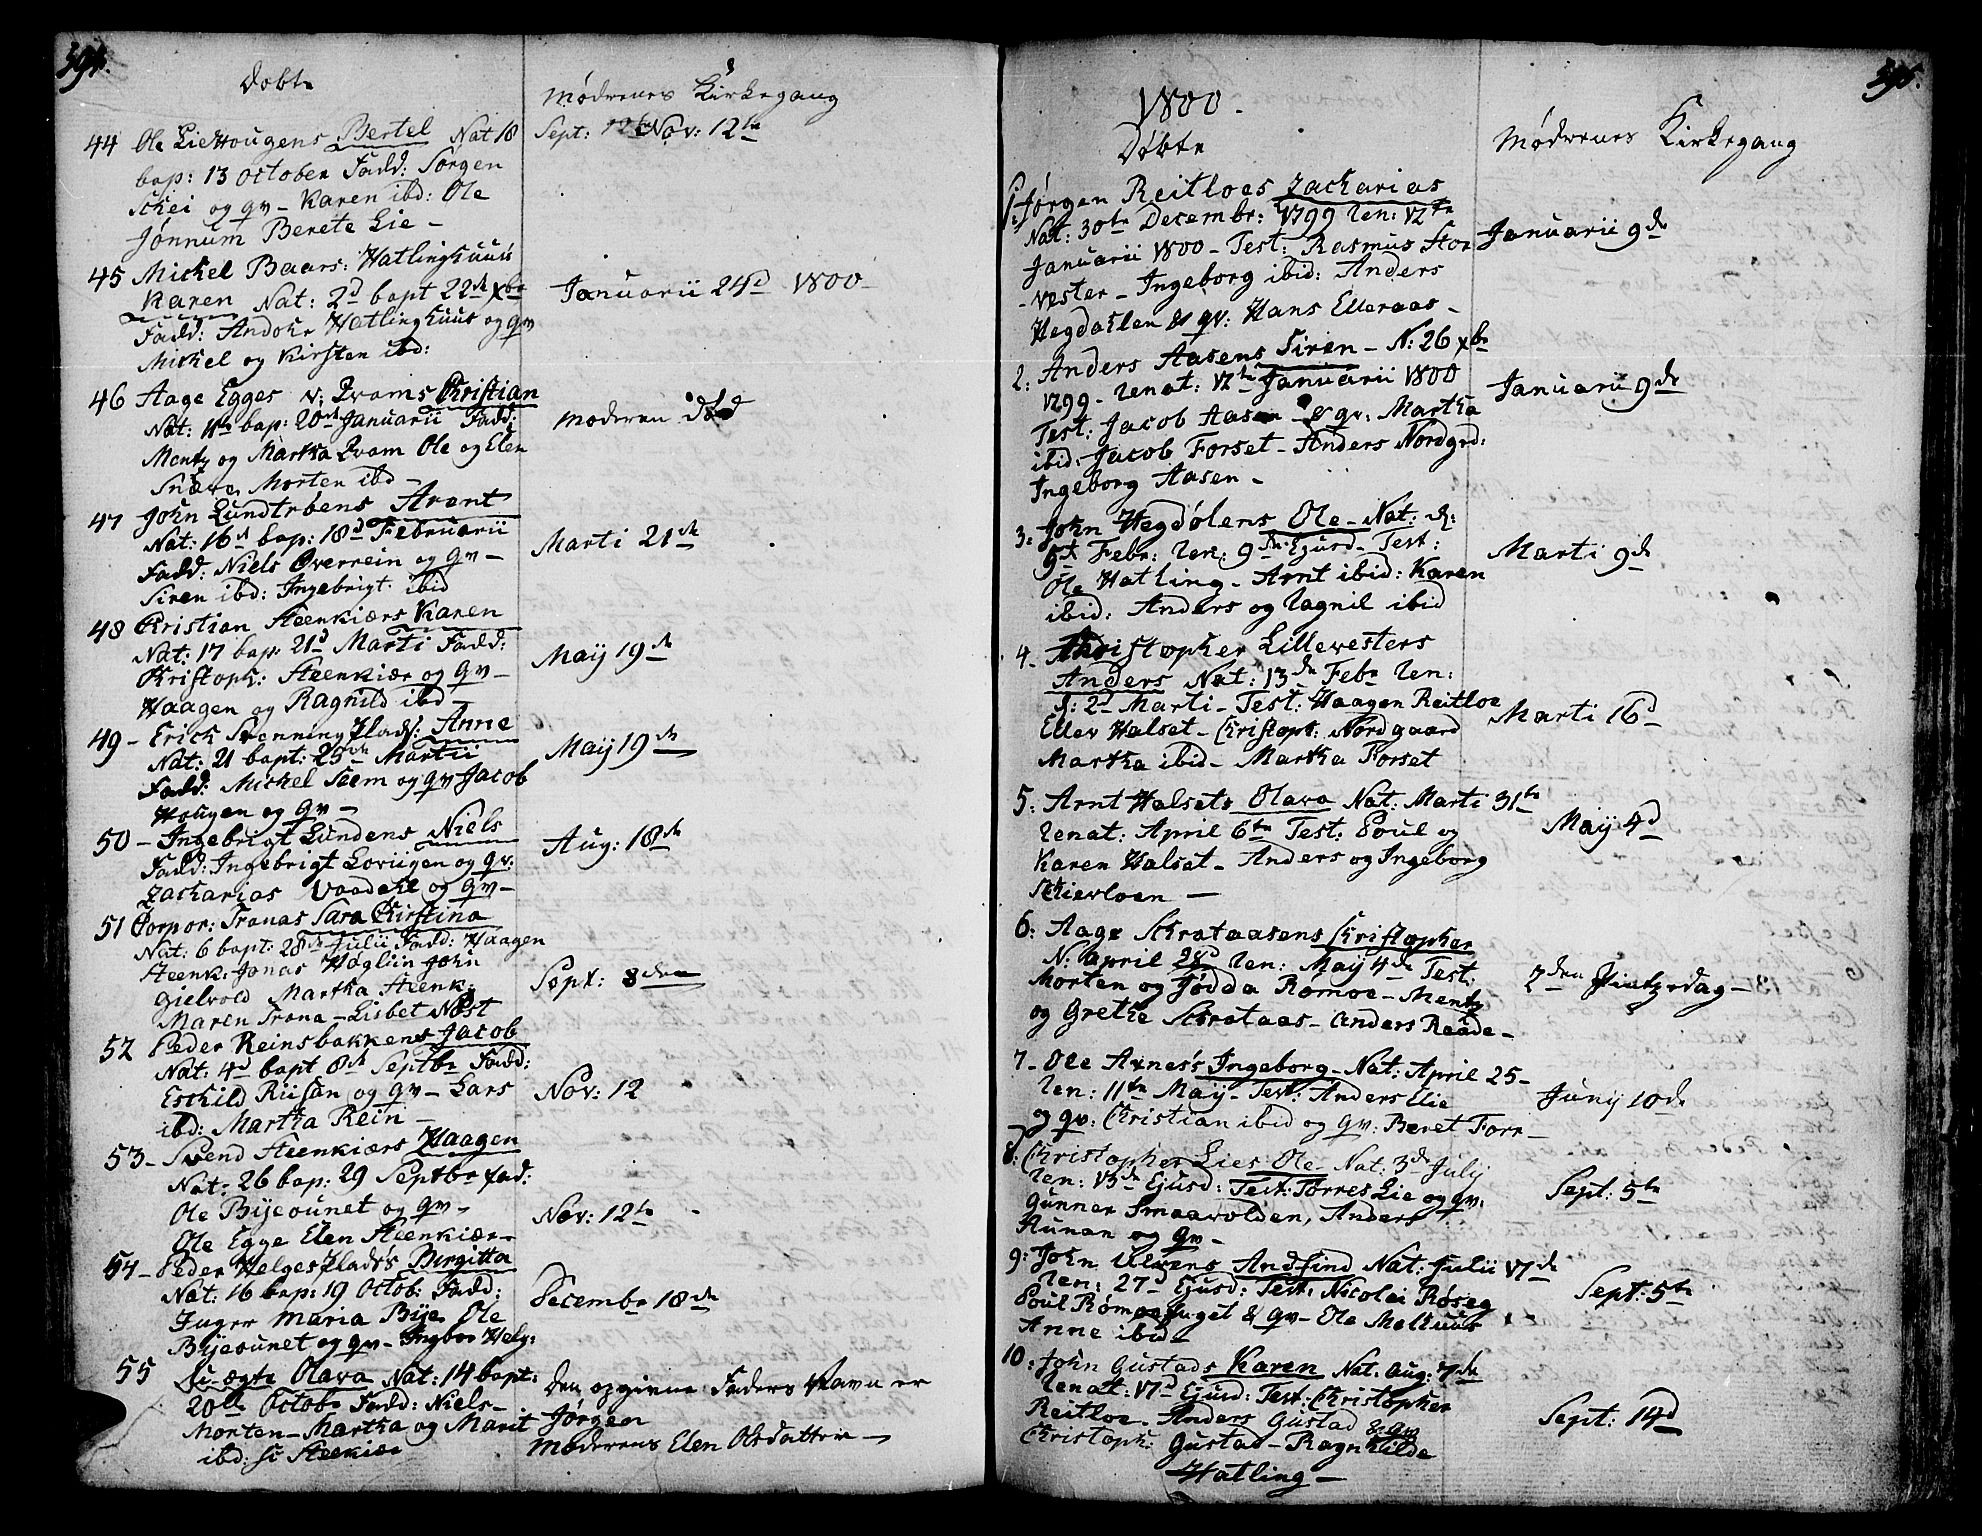 394.
Døbte
Mødrenes Kirkegang
44 Ole Lie Hougens Bertel Nat 18
bap: 13 October Fadd: Jørgen
Schei og qv - Karen ibd: Ole
Jønnum Berete Lie -
Sept: 12te Nov: 12te
45 Mickel Baars: Hatlinghuus
Karen Nat: 2d bapt 22de Xbr
Fadd: Hatlinghuus og qv
Mickel og Kirsten ibd:
Januarii 24d 1800
46 Aage Egges v: Qvams Christian
Nat: bap: 20de Januarii Fadd:
Mentz og Martha Qvam Ole og Elen
Snære Morten ibd -
moderen død
47 John Lundtrøens Arent
Nat: 16d bap: 18d Februarii
Fadd: Niels Overrein og qv -
Siren ibd: Ingebrigt ibid
Marti 21de
48 Christian Steenkiærs Karen
Nat: 17 bap: 21d Marti Fadd:
Christoph: Steenkiær og qv -
Haagen og Ragnild ibd -
Maÿ 19de
49 - Erick Pladś: Anne
Nat: 21 bapt: 25de Martii
Fadd: Mickel Seem og qv Jacob
Hougen og qv -
Maÿ 19de
50 - Ingebrigt Lundens Niels
Fadd: Ingebrigt og qv:
Zacharias og qv -
Aug: 18de
51 Corpor: Tranas Sara Christina
Nat: 6 bapt: 28de Julii Fadd: Haagen
Steenk: Jonas Høgliin John
Gielvold Martha Steenk:
Maren Trana - Lisbet Næst
Sept: 8den
52 Peder Reinsbakkens Jacob
Nat: 4d bapt 8de Septbr Fadd:
Eskild Riisan og qv - Lars
ibd: Martha Rein -
Nov: 12
53 - Svend Steenkiærs Haagen
Nat: 26 bap: 29 Septbr fad:
Ole Bÿeounet og qv -
Ole Egge Elen Steenkiær -
Nov: 12te
54 - Peder Helges Pladś's Birgitta
Nat: 16 bap: 19 Octob: Fadd:
Inger Maria Bÿe Ole
Bÿeounet og qv - Ingbor Helg:
Decembr 18de
55 Olava Nat: 14 bapt:
20de Octobr Fadd: Niels -
Morten - Martha og Marit
ibd:
Den opgivne Faders Navn er
Jørgen
Moderens Elen Olsdatter -
395.
1800 -
Døbte
Mødrenes Kirkegang
1: Jørgen Reitloes Zacharias
Nat: 30te Decembr: 1799 Ren: 12te
Januarii 1800 - Test: Rasmus Stor
- vester - Ingeborg ibid: Anders
Hegdahlen & qv: Hans Elleraas -
Januarii 9de
2: Anders Aasens Siren - N: 26 Xbr
1799 - Renat: 12te Januarii 1800
Test: Jacob Aasen & qv: Martha
ibid: Jacob Forset - Anders Nordgrd:
Ingeborg Aasen -
Januarii 9de
3: John Hegdølens Ole - Nat: d:
5te Febr: Ren: 9de Ejusd - Test:
Ole Hatling - Arnt ibid: Karen
ibid: Anders og Ragnil ibid
Marti 9de
4 - Christopher Lillevesters
Anders Nat: 13de Febr Ren:
d: 2d Marti - Test: Haagen Reitloe
Ellev Halset - Christoph: Nordgaard
Martha ibid - Martha Forset
Marti 16d
5: Arnt Halsets Olava Nat: Marti 31te
Renat: April 6te Test: Poul og
Karen Halset - Anders og Ingeborg
Skierloen -
Maÿ 4d
6: Aage Skrataasens Christopher
N: april 28d Ren: Maÿ 4de Test:
Morten og Jødda Rømoe - Mentz
og Grethe Skrataas - Anders Reade -
2den Pintzedag -
7 - Ole Axnes's Ingeborg - Nat: April 25 -
Ren: 11te Maÿ - Test: Anders Lie
og qv: Christian ibid og qv: Beret Forr -
Junÿ 10de
8: Christopher Lies Ole - Nat: 3de Julÿ
Ren: 13de Ejusd: Test: Torres Lie og qv:
Gunner Smaavolden, Anders
Aunan og qv -
Sept: 5te
9: John Ulvens Andfind Nat: Julii 17de
Ren: 27d Ejusd: Test: Nicolai Røseg
Poul Rømoe & qv - Ole Melhuus
Anne ibid -
Sept: 5te
10: John Gustads Karen Nat: Aug: 7de
Renat: 17d Ejusd: Test: Christopher
Reitloe - Anders Gustad & qv
Christoph: Gustad - Ragnhilde
Hatling -
Sept: 14d